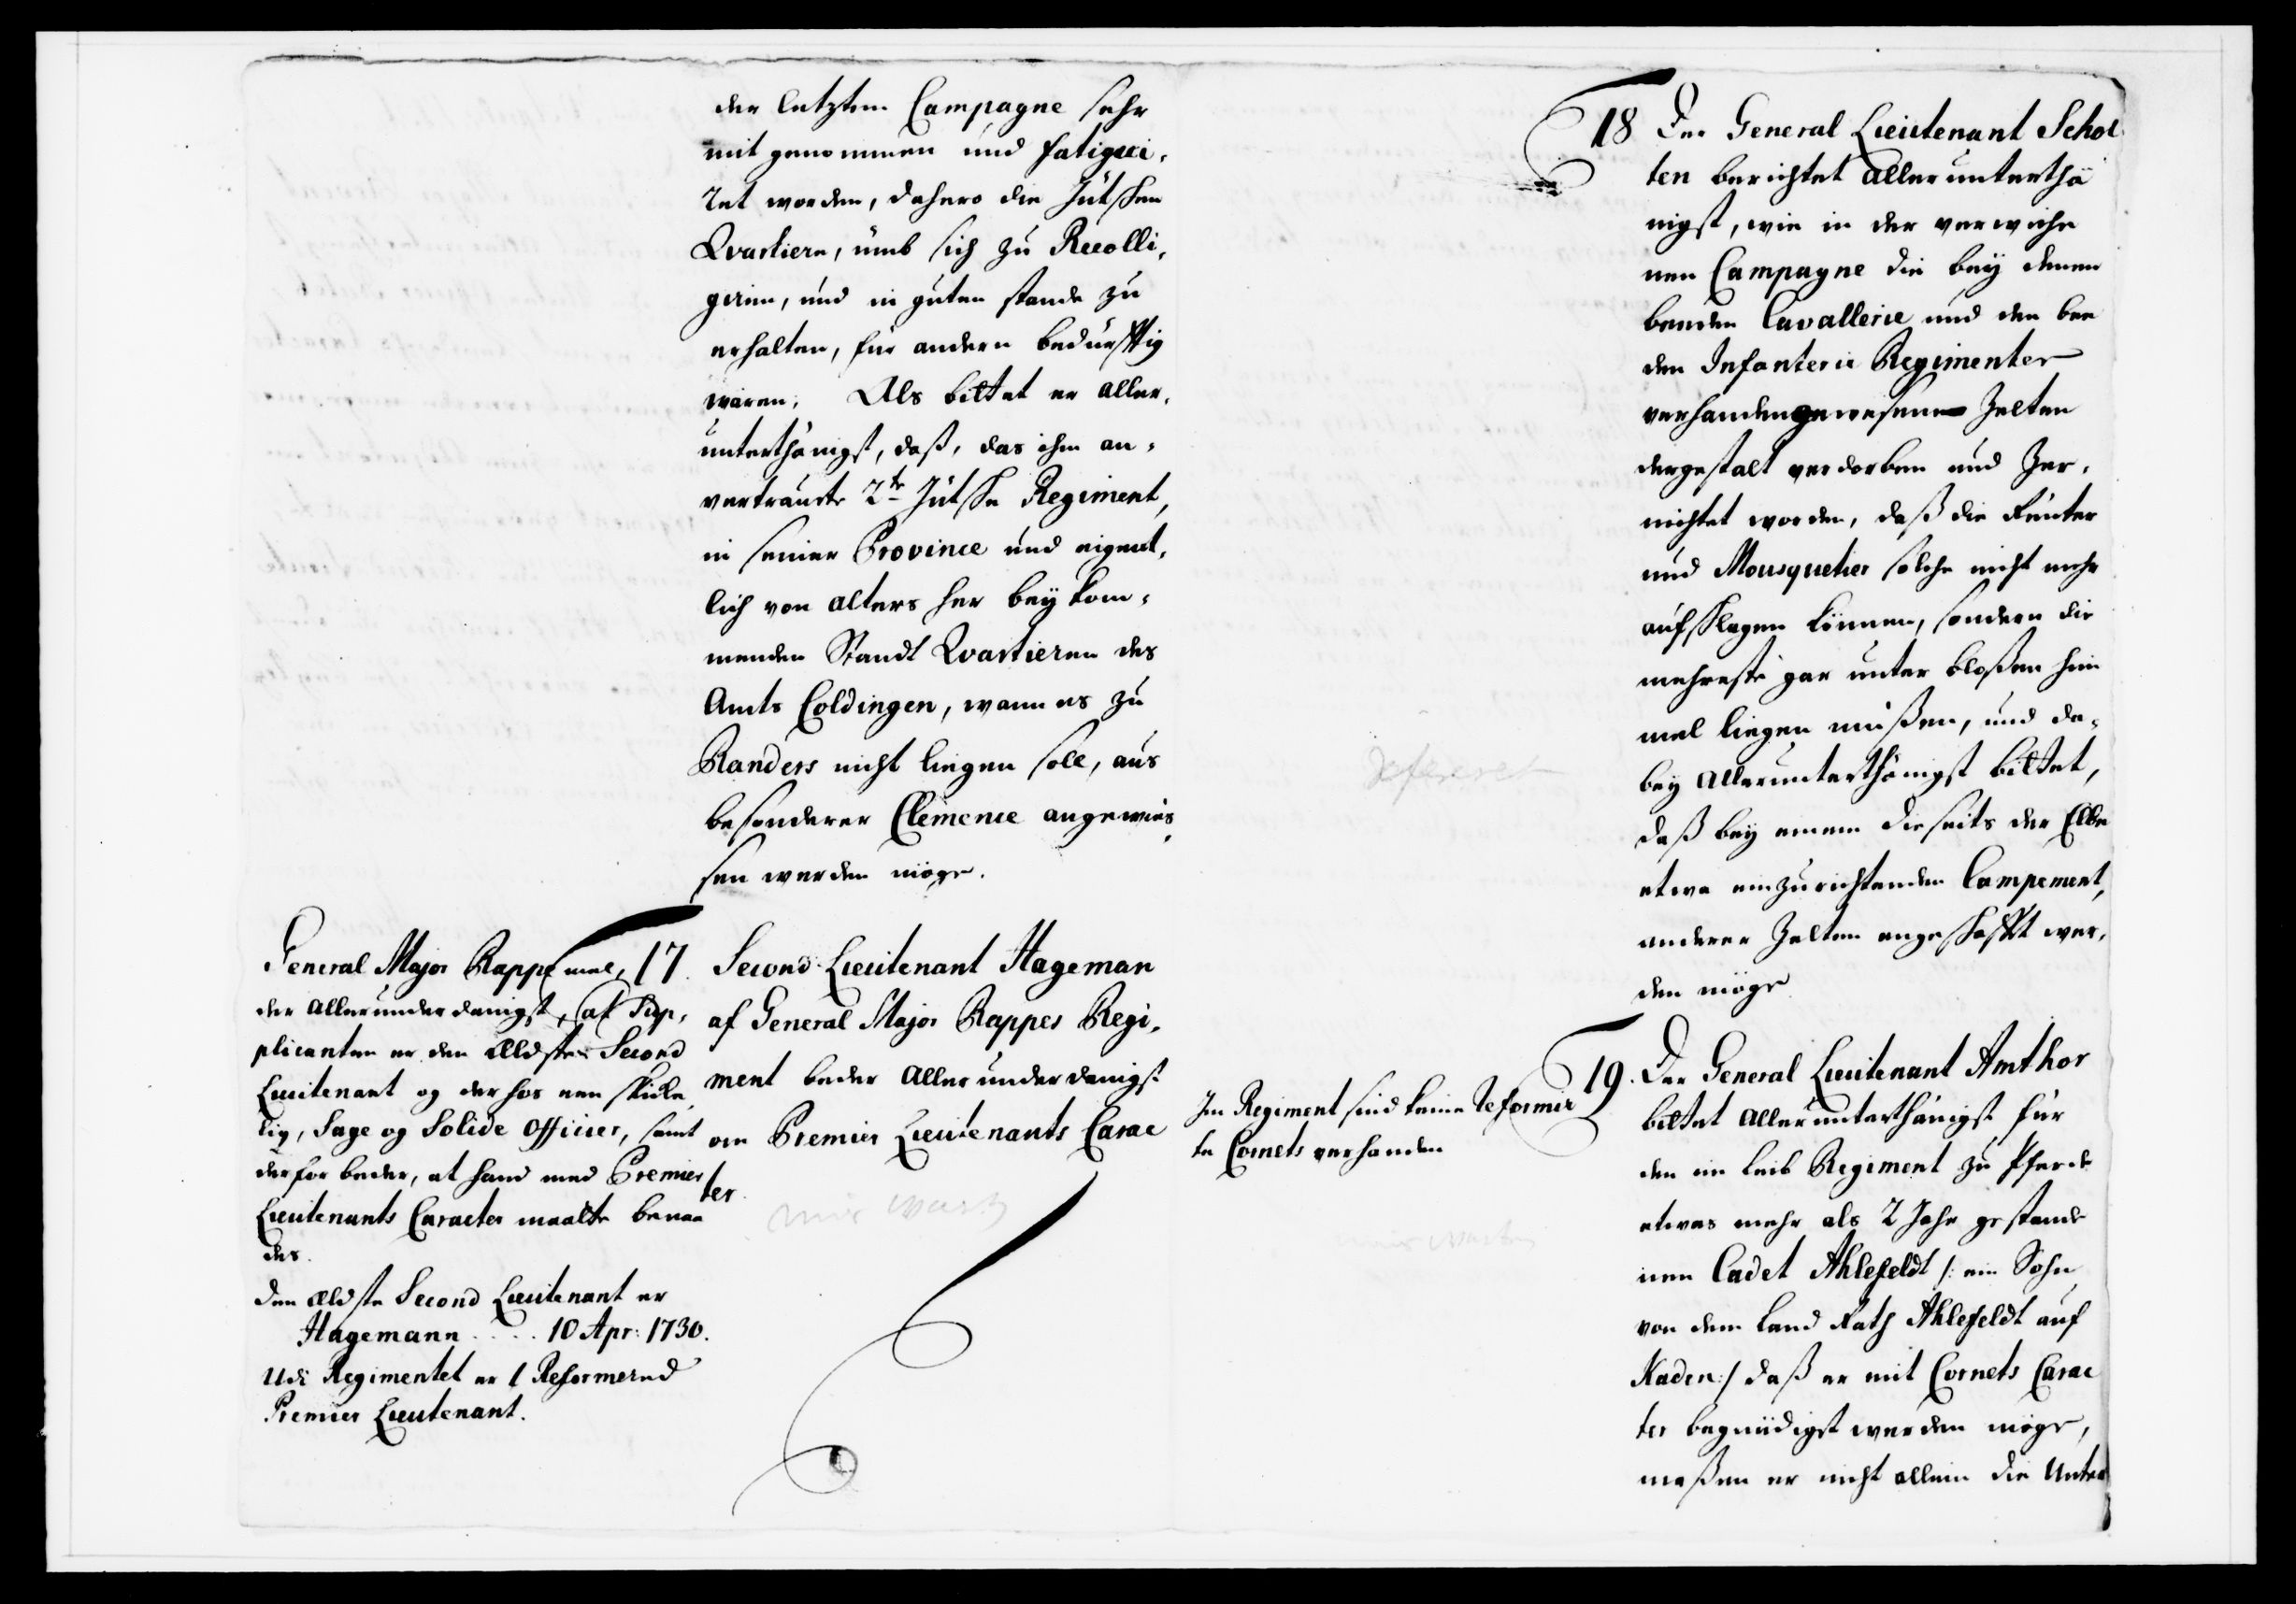 der letztern Campagne sehr
mit genommen und fatigui-
ret worden, dahero die Jütschen
Qvartiere, umb sich zu Recolli-
giren, und in guten stande zu
erhalten, für andern bedürfftig
wären; Als bittet er aller-
unterthänigst, daß, das ihm an-
vertraute 2te Jütsche Regiment,
in seiner Province und eigent-
lich von alters her bey kom-
menden Standt Qvartieren des
Amts Coldingen, wann es zu
Randers nicht liegen solle, aus
besonderer Clemence angewie-
sen werden möge.
General Major Rappe mel-
der allerunderdanigst, at Sup-
plicanten er den ældste Second
Lieutenant og derhos een skicke-
lig, Sage og Solide Officier, samt
derfor beder, at hand med Premier
Lieutenants Caracter maatte benaa
des.
den ældste Second Lieutenant er
Hagemann . . . . 10 Apr: 1730.
Udi Regimentet er 1 Reformered
Premier Lieutenant.
17. Second Lieutenant Hageman
af General Major Rappes Regi-
ment beder allerunderdanigst
om Premier Lieutenants Carac
ter.
18 Der General Lieutenant Schol
ten berichtet allerunterthä
nigst, wie in der verwiche
nen Campagne die bey denen
beeden Cavallerie und den bee
den Infanterie Regimenter
verhanden gewesene Zelten
dergestalt verdorben und Zer-
nichtet worden, daß die Reuter
und Mousquetier solche nicht mehr
aufschlagen können, sondern die
mehreste gar unter bloßen him
mel liegen müßen, und da-
bey allerunterthänigst bittet,
daß bey einem dieseits der Elbe
etwa einzurichtenden Campement,
anderer Zelten angeschafft wer-
den möge
refereret
19. Der General Lieutenant Amthor
bittet allerunterthänigst für
den im Leib Regiment zu Pferde
etwas mehr als 2 Jahr gestande
nen Cadet Ahlefeldt /: ein Sohn
von dem Land Rath Ahlefeldt auf
Kaden:/ daß er mit Cornets Carac
ter begnädigt werden möge,
maßen er nicht allein die Unter
Im Regiment sind keine reformir
te Cornets verhanden